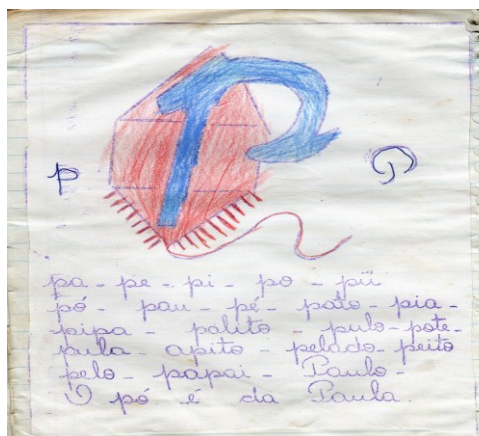 P
p P
pa - pe - pi - po - pu
pó - pau - pé - pato - pia -
pipa - palito - pulo - pote -
pula - apito - pelado - peito
pelo - papai - Paulo -
O pó é da Paula.